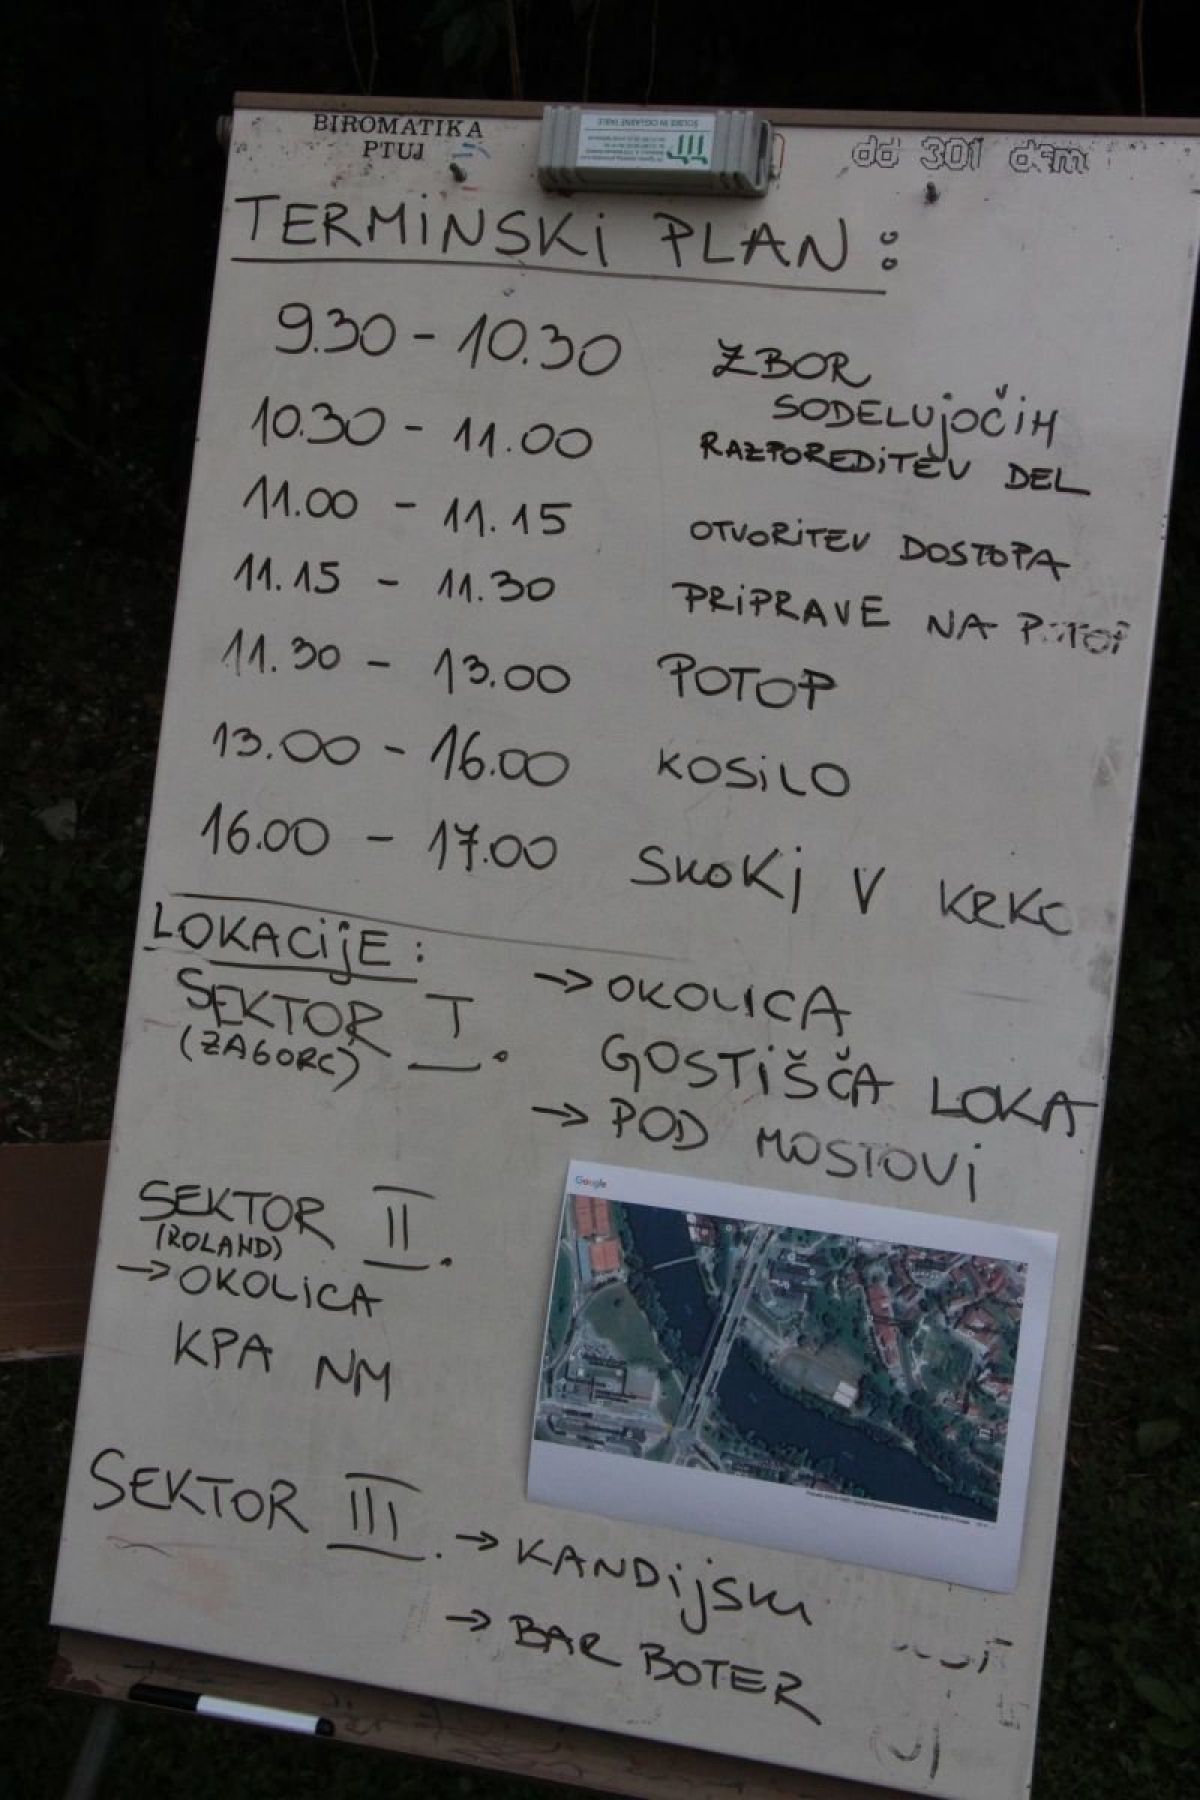 BIROMATIKA
PTUJ
dd 301 dem
TERMINSKI PLAN:
9.30 - 10.30 ZBOR
SODELUJOČIH
10.30 - 11.00 RAZPOREDITEV DEL
11.00 - 11.15 OTVORITEV DOSTOPA
11.15 - 11.30 PRIPRAVE NA POTOP
11.30 - 13.00 POTOP
13.00 - 16.00 KOSILO
16.00 - 17.00 SKOKI V KRKO
LOKACIJE:
SEKTOR I.
(ZAGORC)
→ OKOLICA
GOSTIŠČA LOKA
→ POD MOSTOVI
SEKTOR II.
(ROLAND)
→ OKOLICA
KPA NM
Google
SEKTOR III. → KANDIJSKI
→ BAR BOTER